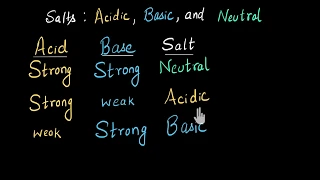 Salts : Acidic, Basic, and Neutral
Acid Base Salt
Strong Strong Neutral
Strong weak Acidic
weak Strong Basic